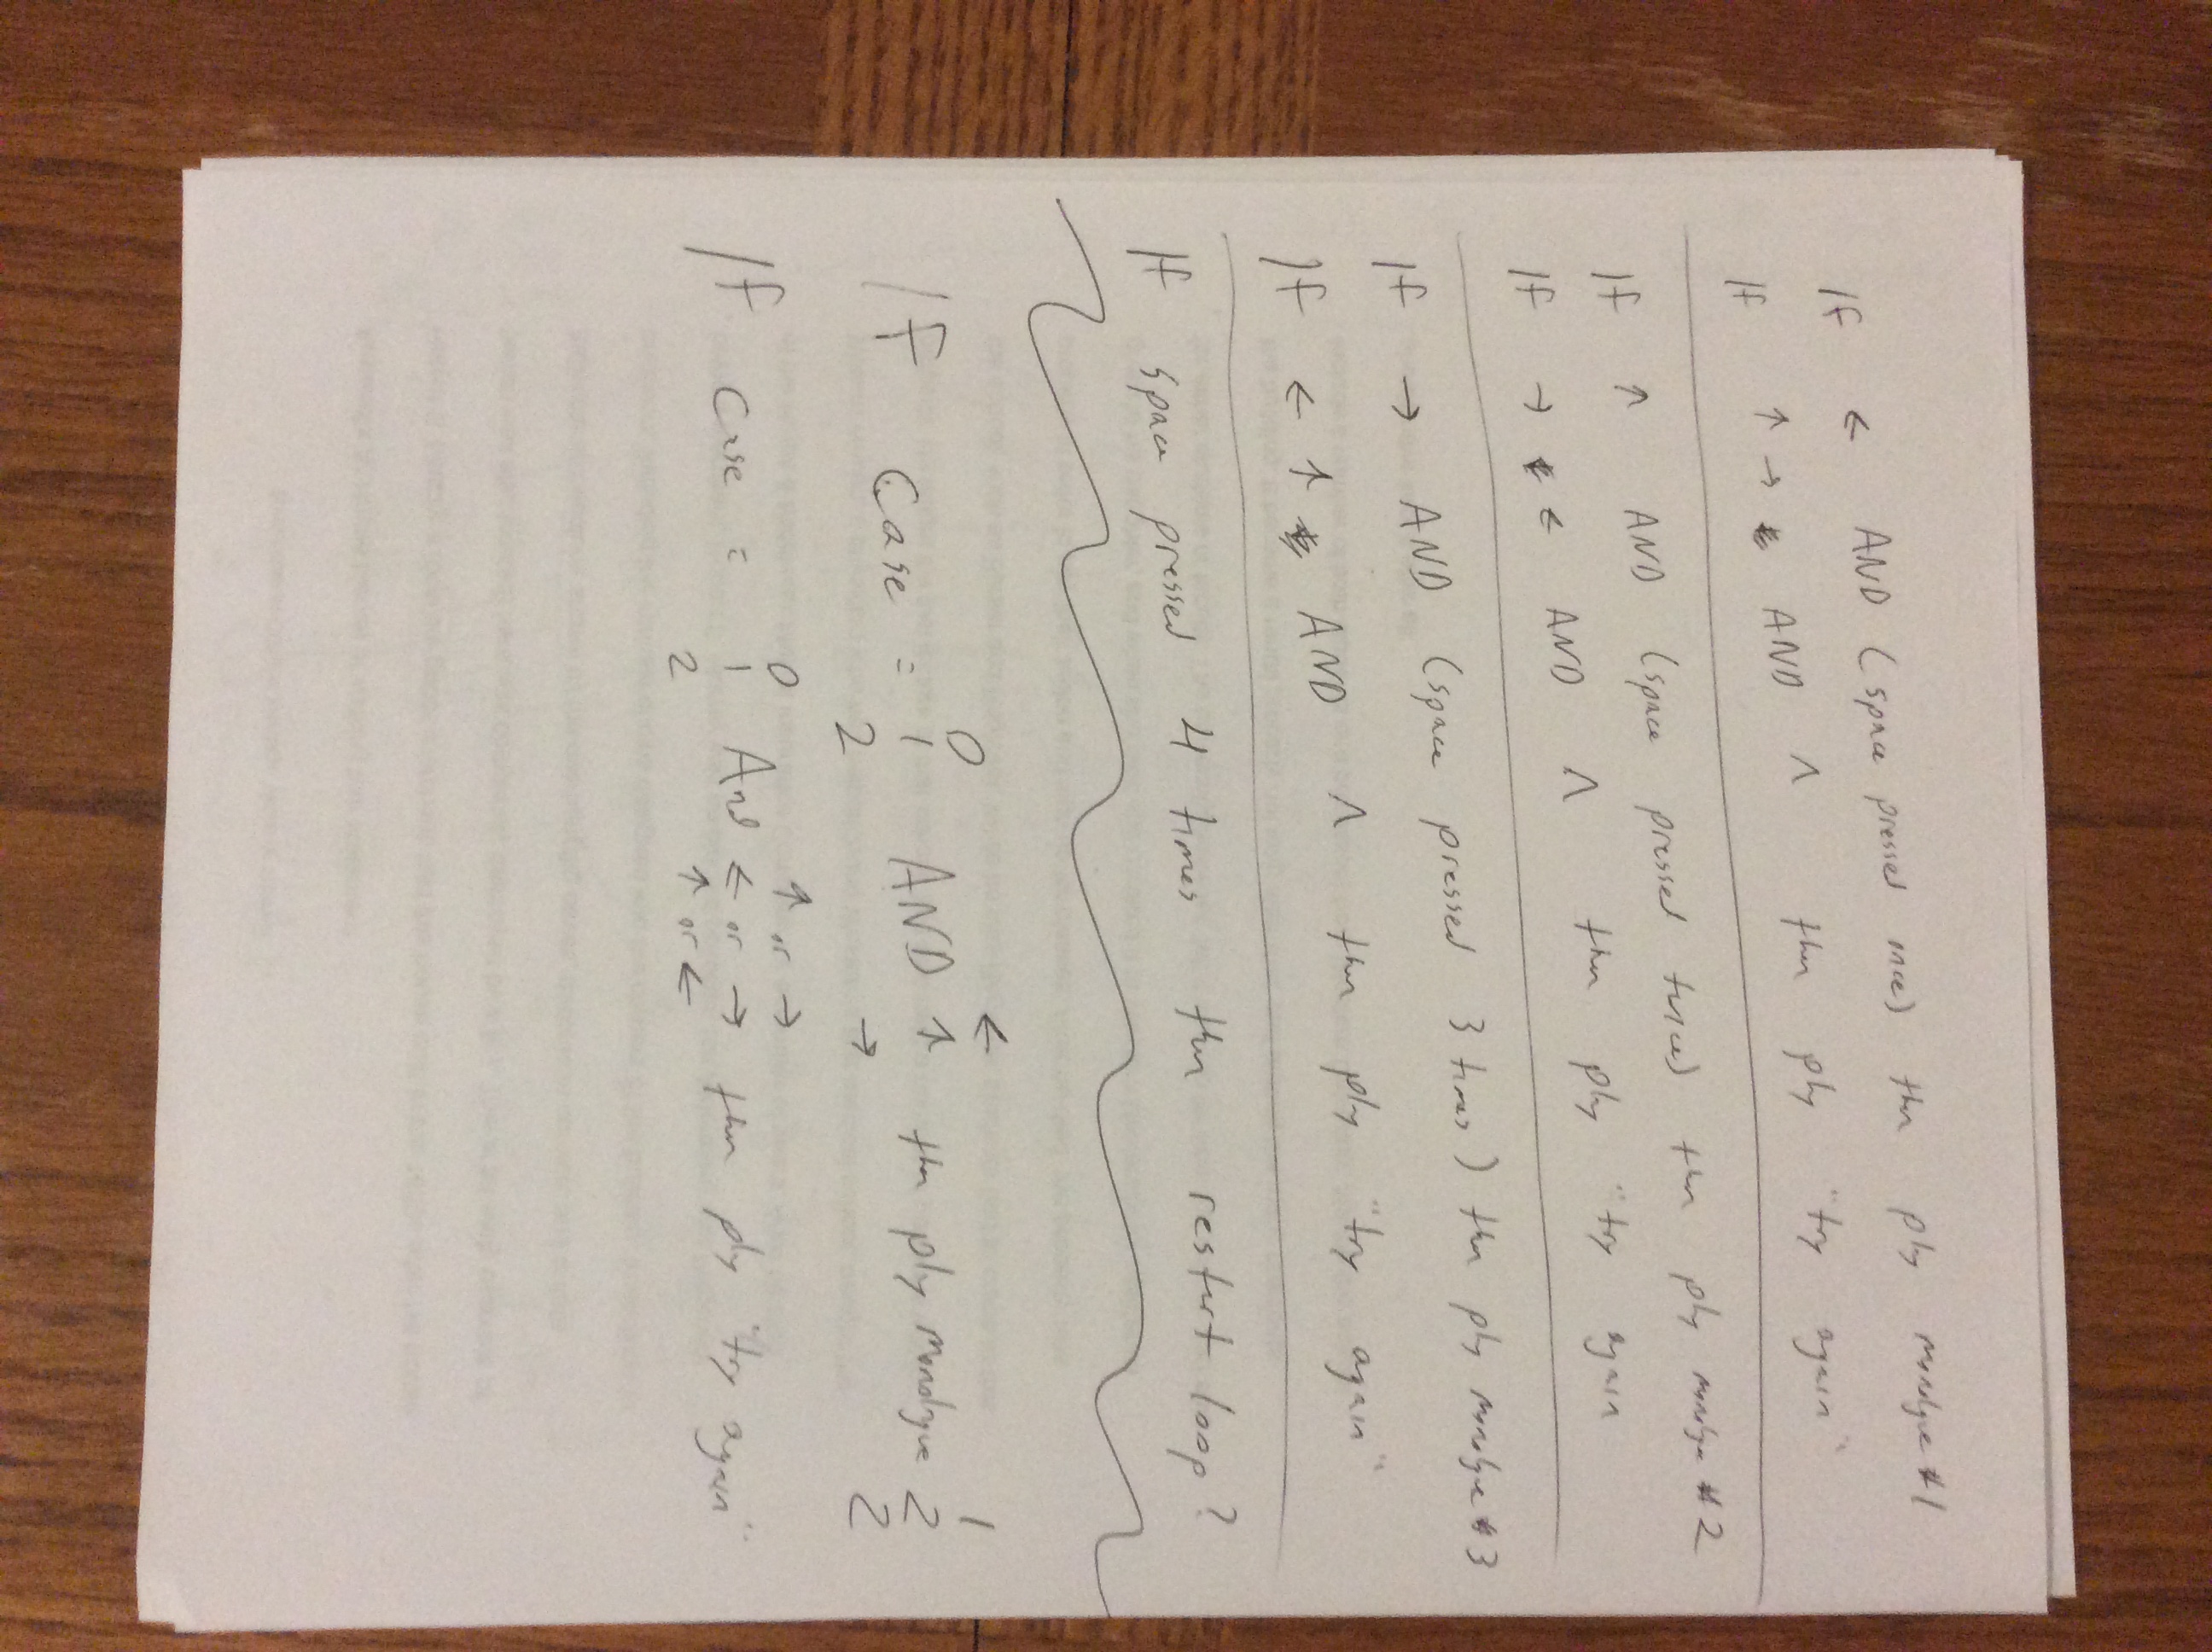 If ↓ AND (space pressed once) then play monologue #1
If ← ↑ AND < then play "try again"
If ← AND (space pressed twice) then play monologue #2
If ↑ ↓ AND < then play "try again
If ↑ AND (space pressed 3 times) then play monologue #3
If ↓ ← AND < then play "try again"
If space pressed 4 times then restart loop?
0 ↓ 1
If Case = 1 AND ← then play monologue 2
2 ↑ 2
0 ← or ↑
If Case = 1 And ↓ or ↑ then play "try again"
2 ← or ↓